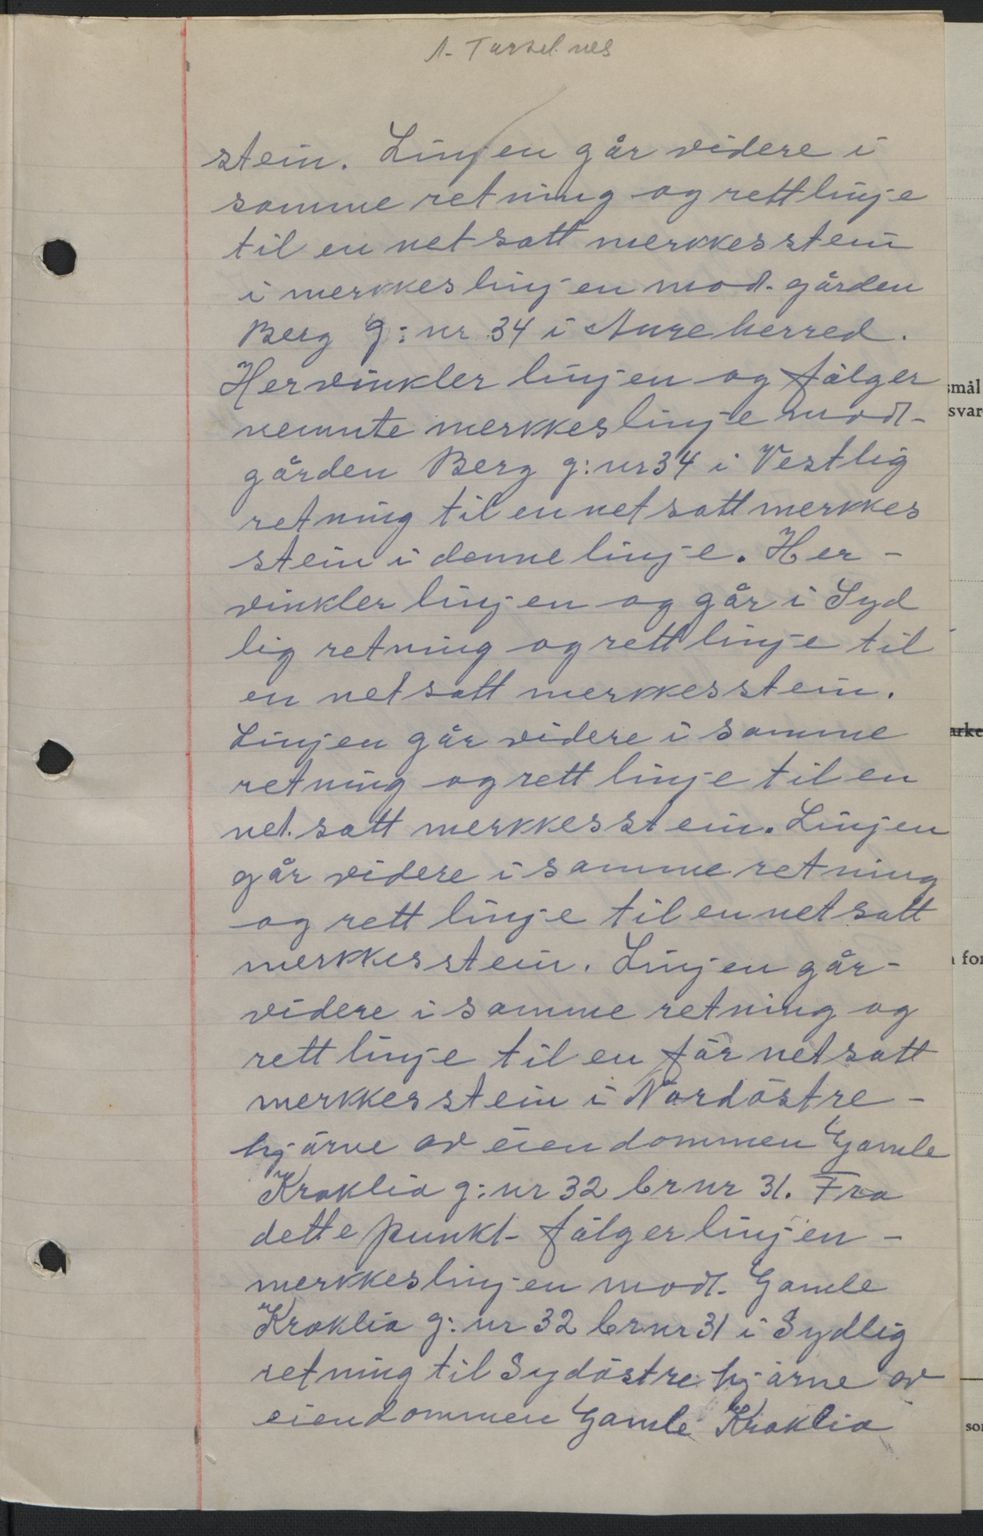 stein. Linjen går videre i
samme retning og rett linje
til en net satt merkkesstein
i merkkeslinjen mod. gården
Berg g: nr 34 i Aure herred.
Her vinkler linjen og fölger
nemnte merkkeslinje mod-
gården Berg g: nr 34 i Vestlig
retning til en net satt merkkes
stein i denne linje. Her -
vinkler linjen og går i Syd
lig retning og rett linje til
en net satt merkkesstein.
Linjen går videre i samme
retning og rett linje til en
net. satt merkkesstein. Linjen
går videre i samme retning
og rett linje til en net satt
merkkesstein. Linjen går-
videre i samme retning og
rett linje til en för net satt
merkkesstein i Nordöstre -
hjörne av eiendommen Gamle
Kroklia g: nr 32 brnr 31. Fra
dette punkt- fölger linjen -
merkkeslinjen mod. Gamle
Kroklia g: nr 32 brnr 31 i Sydlig
retning til Sydöstre hjörne av
eiendommen Gamle Kroklia
smål
svar
arke
for
so